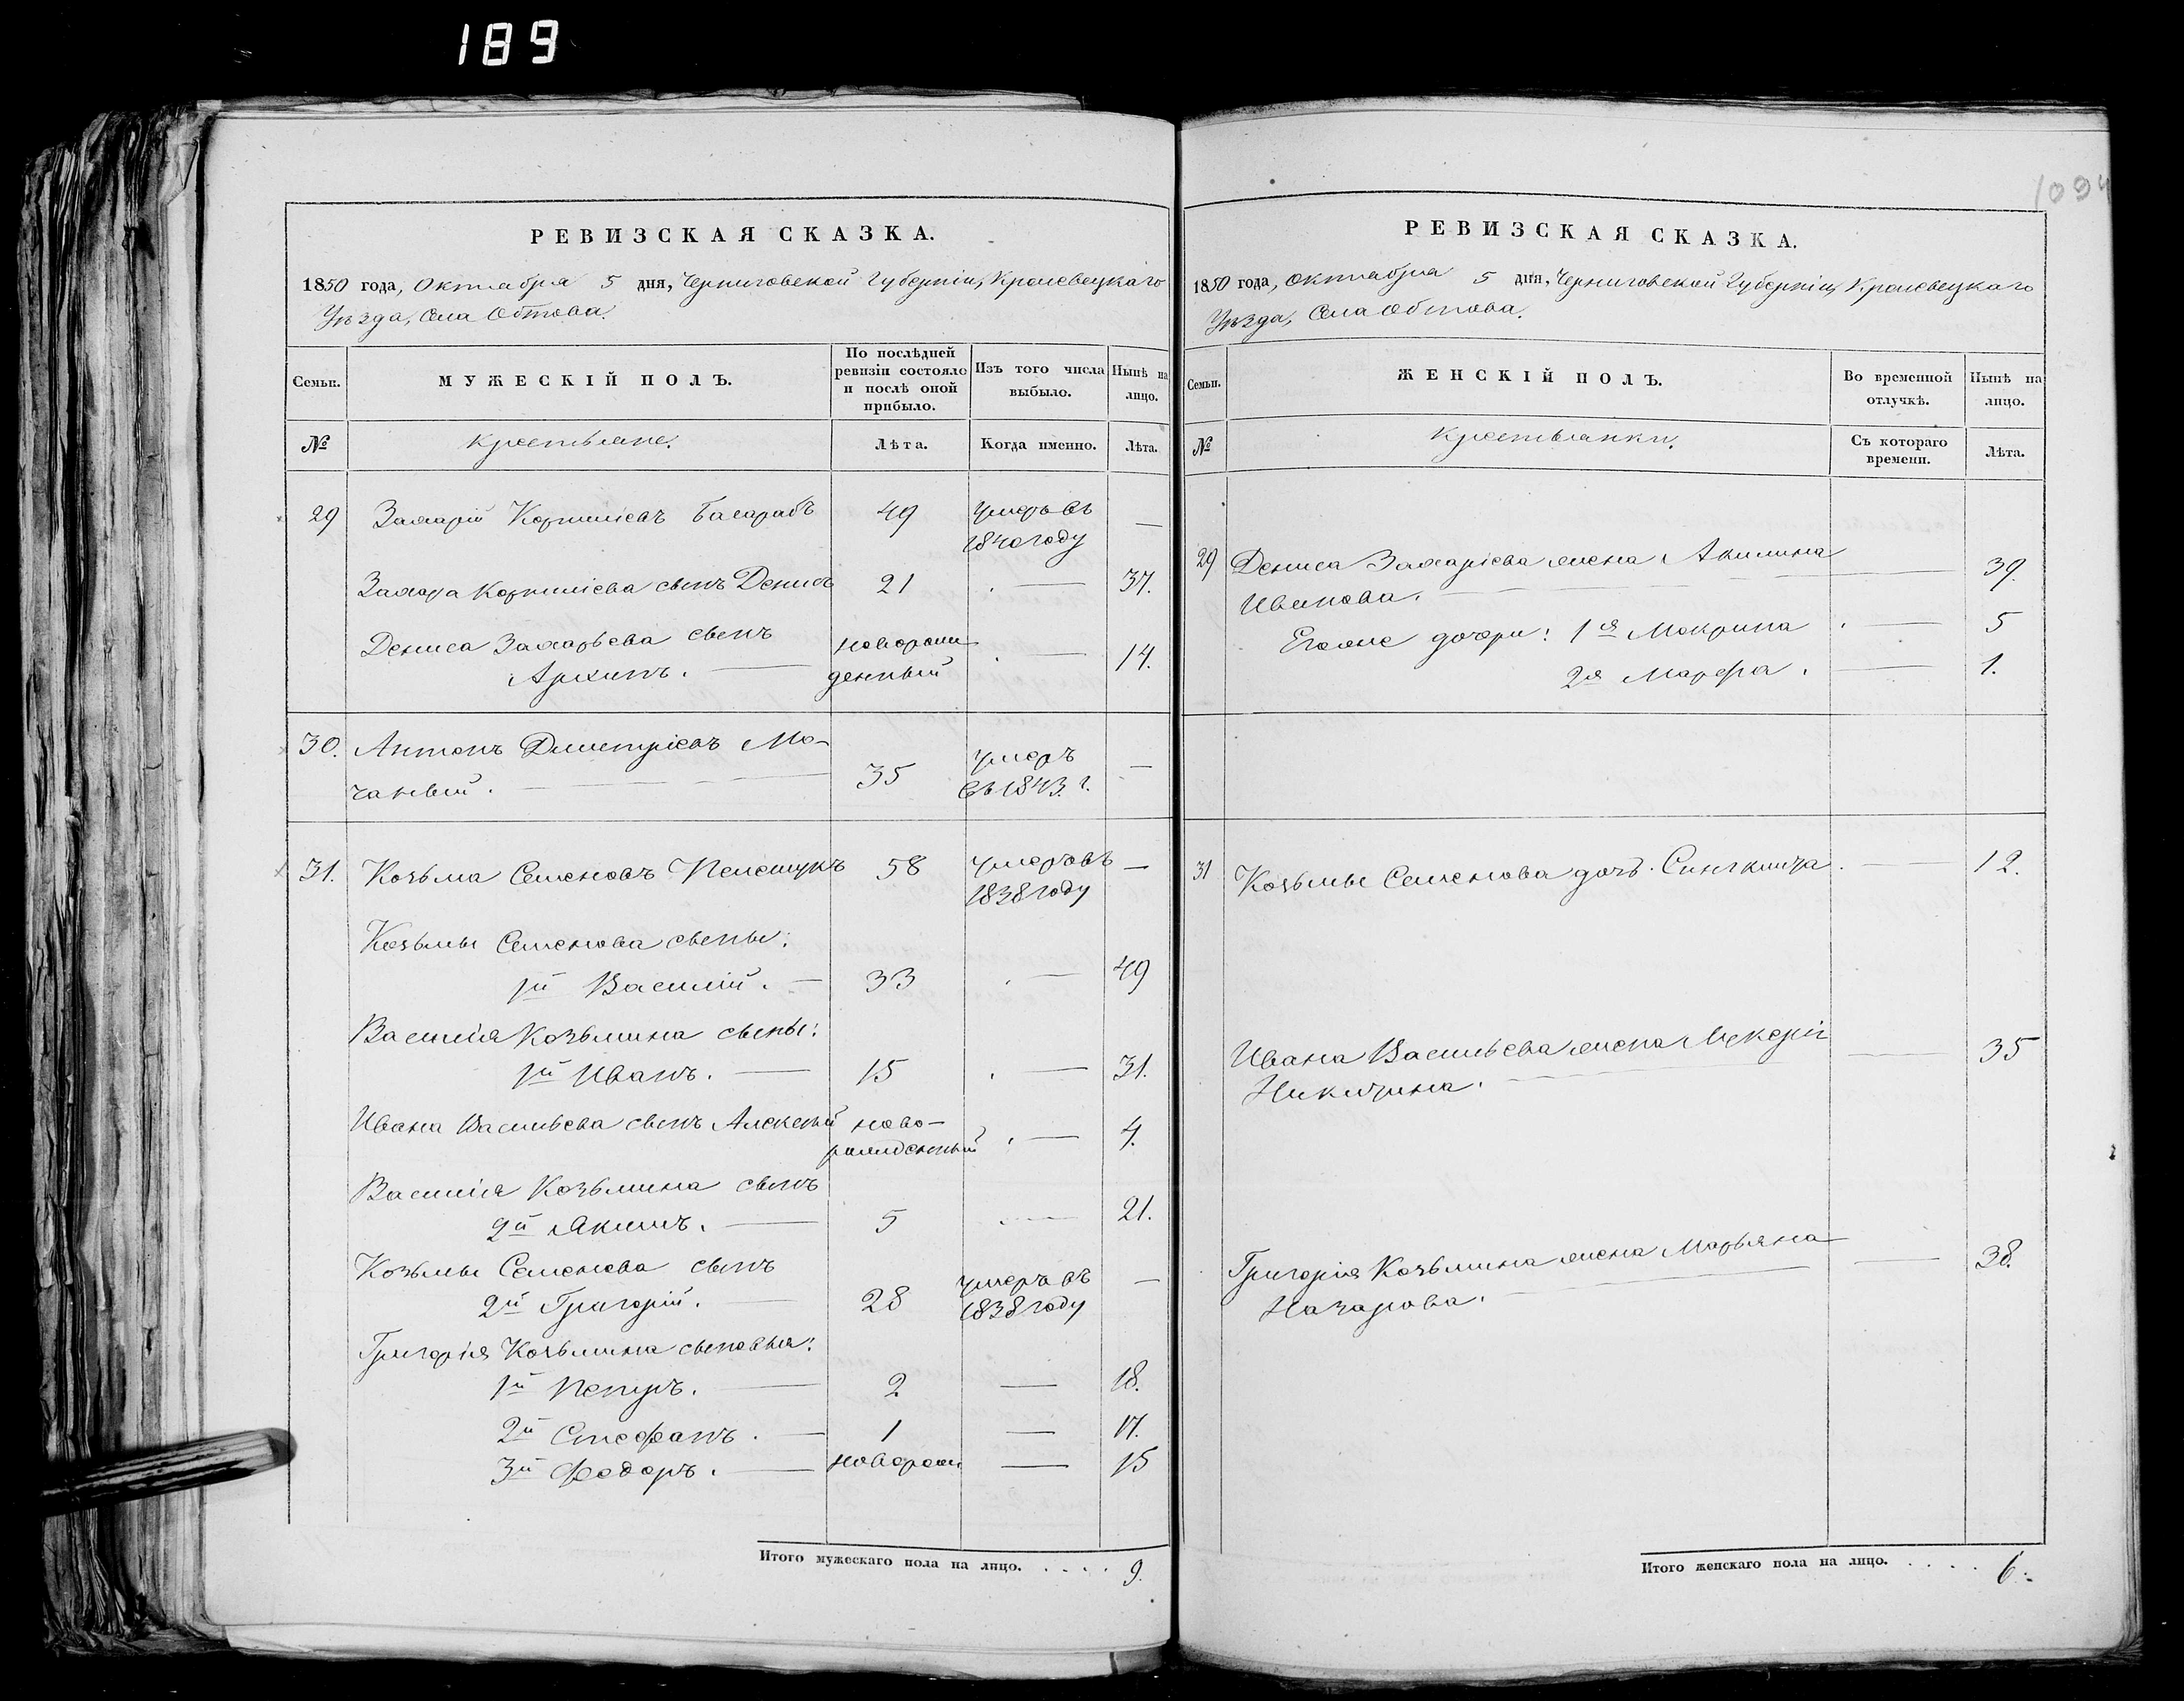 189
РЕВИЗСКАЯ СКАЗКА.
1850 года, Октября 5 дня, Черниговской Губернiи, Кролевецкаго
Уѣзда, Села Обтова.
Семьи.
МУЖЕСКIЙ ПОЛЪ.
По послѣдней ревизiи состояло и послѣ оной прибыло.
Изъ того числа выбыло.
Нынѣ на лицо.
№
Крестьяне.
Лѣта.
Когда именно.
Лѣта.
29 Захарiй Корнилiевъ Басарабъ 49 умеръ въ —
1840 году
Захара Корнилiева сынъ Денисъ 21 . — 37.
Дениса Захарьева сынъ новорож-
Архипъ. — денный . — 14.
30. Антонъ Дмитрiевъ Мо- умеръ
чаный. — 35 въ 1843. г. —
31. Козьма Семеновъ Пелешукъ 58 умеръ въ —
1838 году
Козьмы Семенова сыны:
1й Василiй. — 33 . — 49
Василiя Козьмина сыны:
1й Иванъ. — 15 . — 31.
Ивана Васильева сынъ Алексѣй ново-
рожденный . — 4.
Василiя Козьмина сынъ
2й Якимъ. — 5 . — 21.
Козьмы Семенова сынъ
2й Григорiй. — 28 умеръ въ —
1838 году
Григорiя Козьмина сыновья:
1й Петръ. — 2 — 18.
2й Стефанъ. — 1 — 17.
3й Федоръ. — новорож. — 15
Итого мужескаго пола на лицо. . . . . 9.
1094
РЕВИЗСКАЯ СКАЗКА.
1850 года, Октября 5 дня, Черниговской Губернiи, Кролевецкаго
Уѣзда, Села Обтова.
Семьи.
ЖЕНСКIЙ ПОЛЪ.
Во временной отлучкѣ.
Нынѣ на лицо.
№
Крестьянки.
Съ котораго времени.
Лѣта.
29 Дениса Захарiева жена Акилина
Иванова. — 39.
Егоже дочери: 1я Макрина . — 5
2я Марфа. — 1.
31 Козьмы Семенова дочь . — 12.
Ивана Васильева жена Лукерiя
Никитина. — 35
Григорiя Козьмина жена Марьяна
Назарова. — 38.
Итого женскаго пола на лицо. . . . . 6.